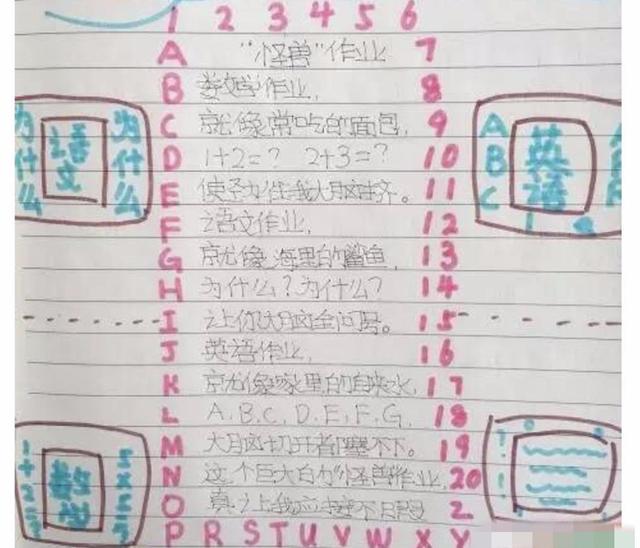 1 2 3 4 5 6
A "怪兽"作业 7
B 数学作业, 8
C 就像常吃的面包, 9
D 1+2=? 2+3=? 10
E 使劲往我大脑挤。 11
F 语文作业, 12
G 就像海里的鲨鱼, 13
H 为什么?为什么? 14
I 让你大脑全问号。 15
J 英语作业, 16
K 就像家里的自来水, 17
L A.B.C.D.E.F.G. 18
M 大脑切开都塞不下。 19
N 这个巨大的"怪兽作业, 20
O 真让我应接不暇 2
P R S T U V W X Y
为什么
语文
为什么
A B C
英语
数学
1+2=3